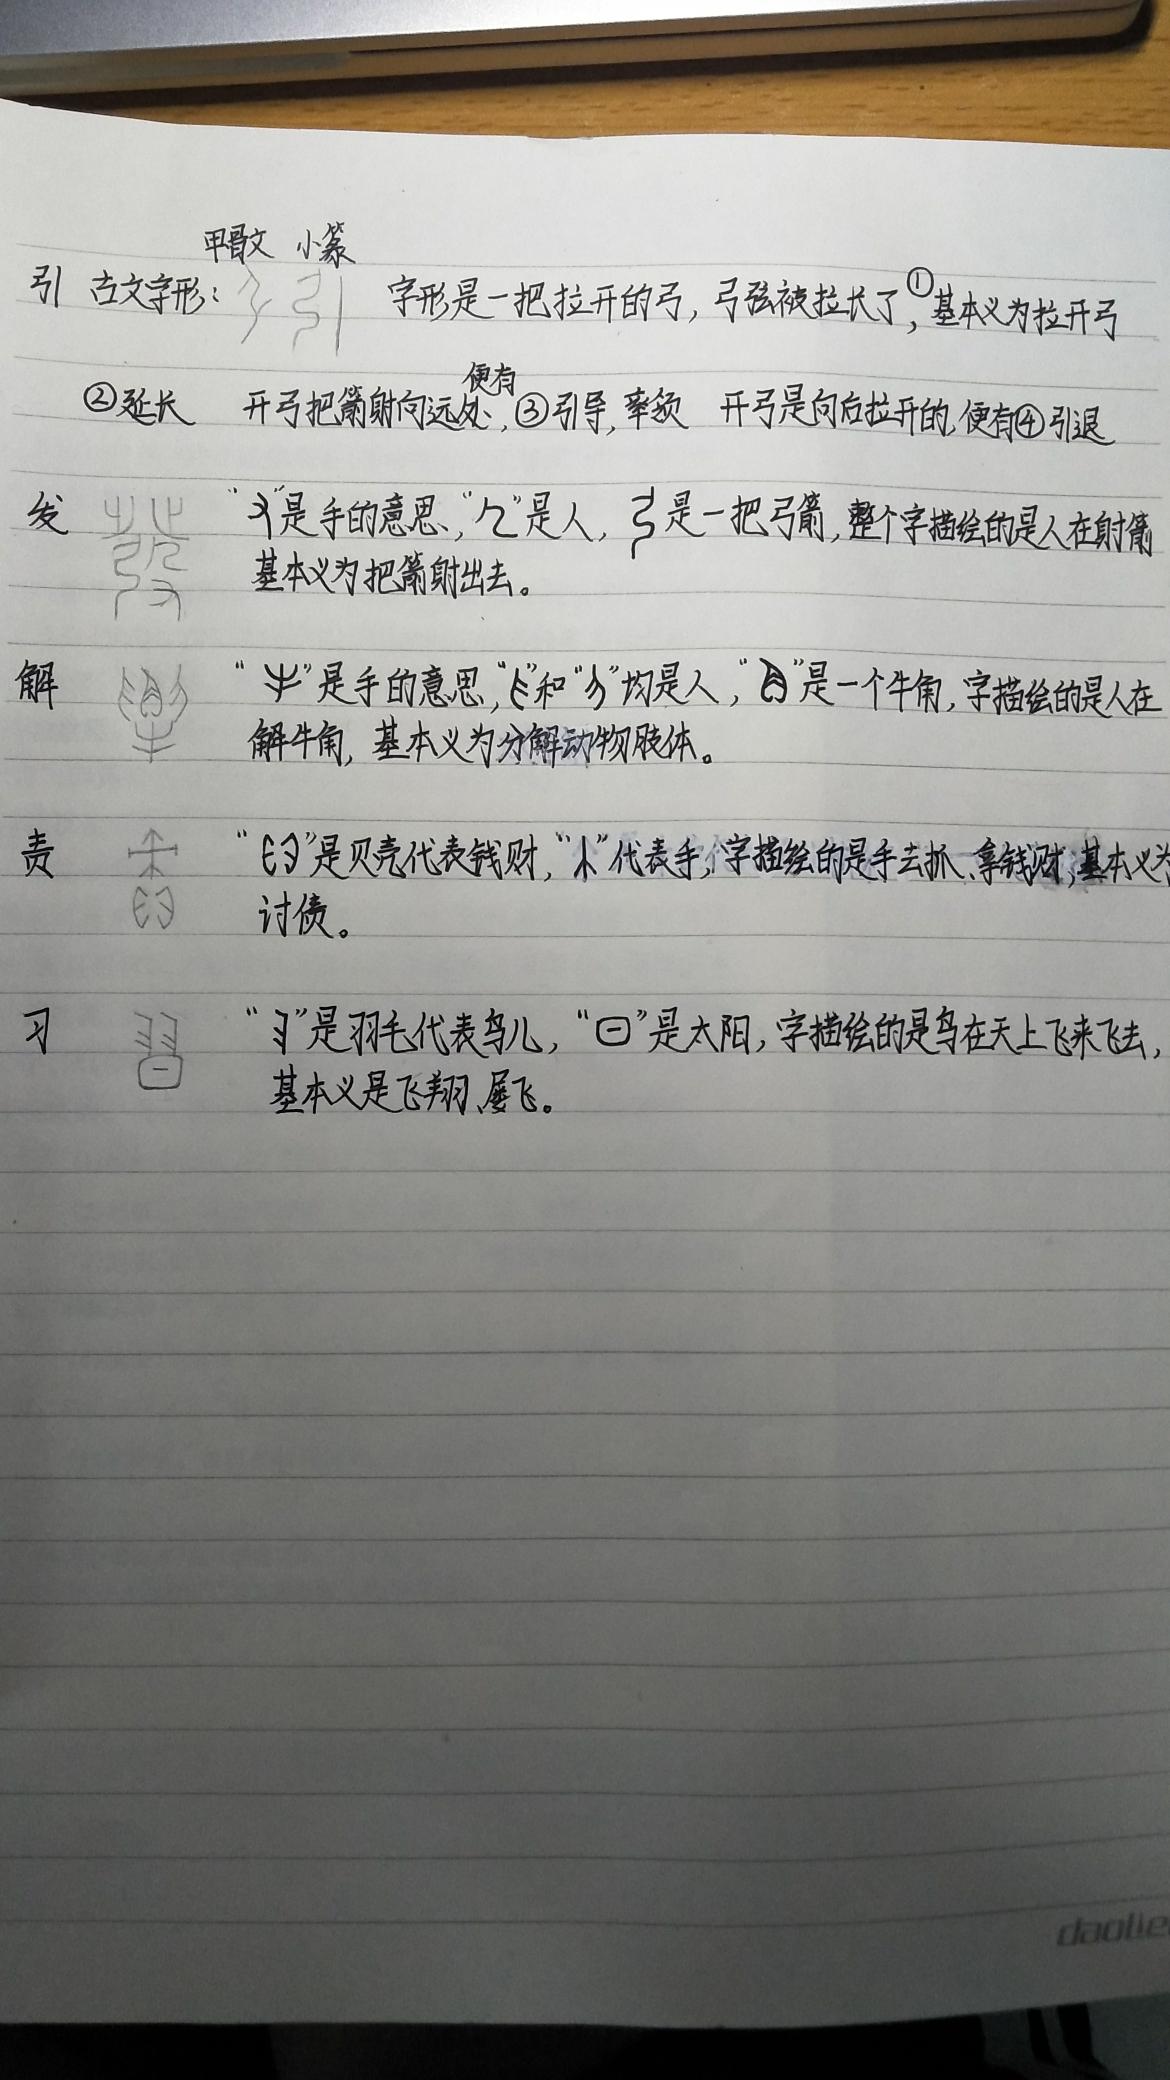 甲骨文 小篆
引 古文字形： 字形是一把拉开的弓，弓弦被拉长了，①基本义为拉开弓
②延长 开弓把箭射向远处，便有③引导，率领 开弓是向后拉开的，便有④引退
发 “ ”是手的意思，“ ”是人， 是一把弓箭，整个字描绘的是人在射箭
基本义为把箭射出去。
解 “ ”是手的意思，“ ”和“ ”均是人，“ ”是一个牛角，字描绘的是人在
解牛角，基本义为分解动物肢体。
责 “ ”是贝壳代表钱财，“ ”代表手，字描绘的是手去抓、拿钱财，基本义为
讨债。
习 “ ”是羽毛代表鸟儿，“ ”是太阳，字描绘的是鸟在天上飞来飞去，
基本义是飞翔、屡飞。
daolie